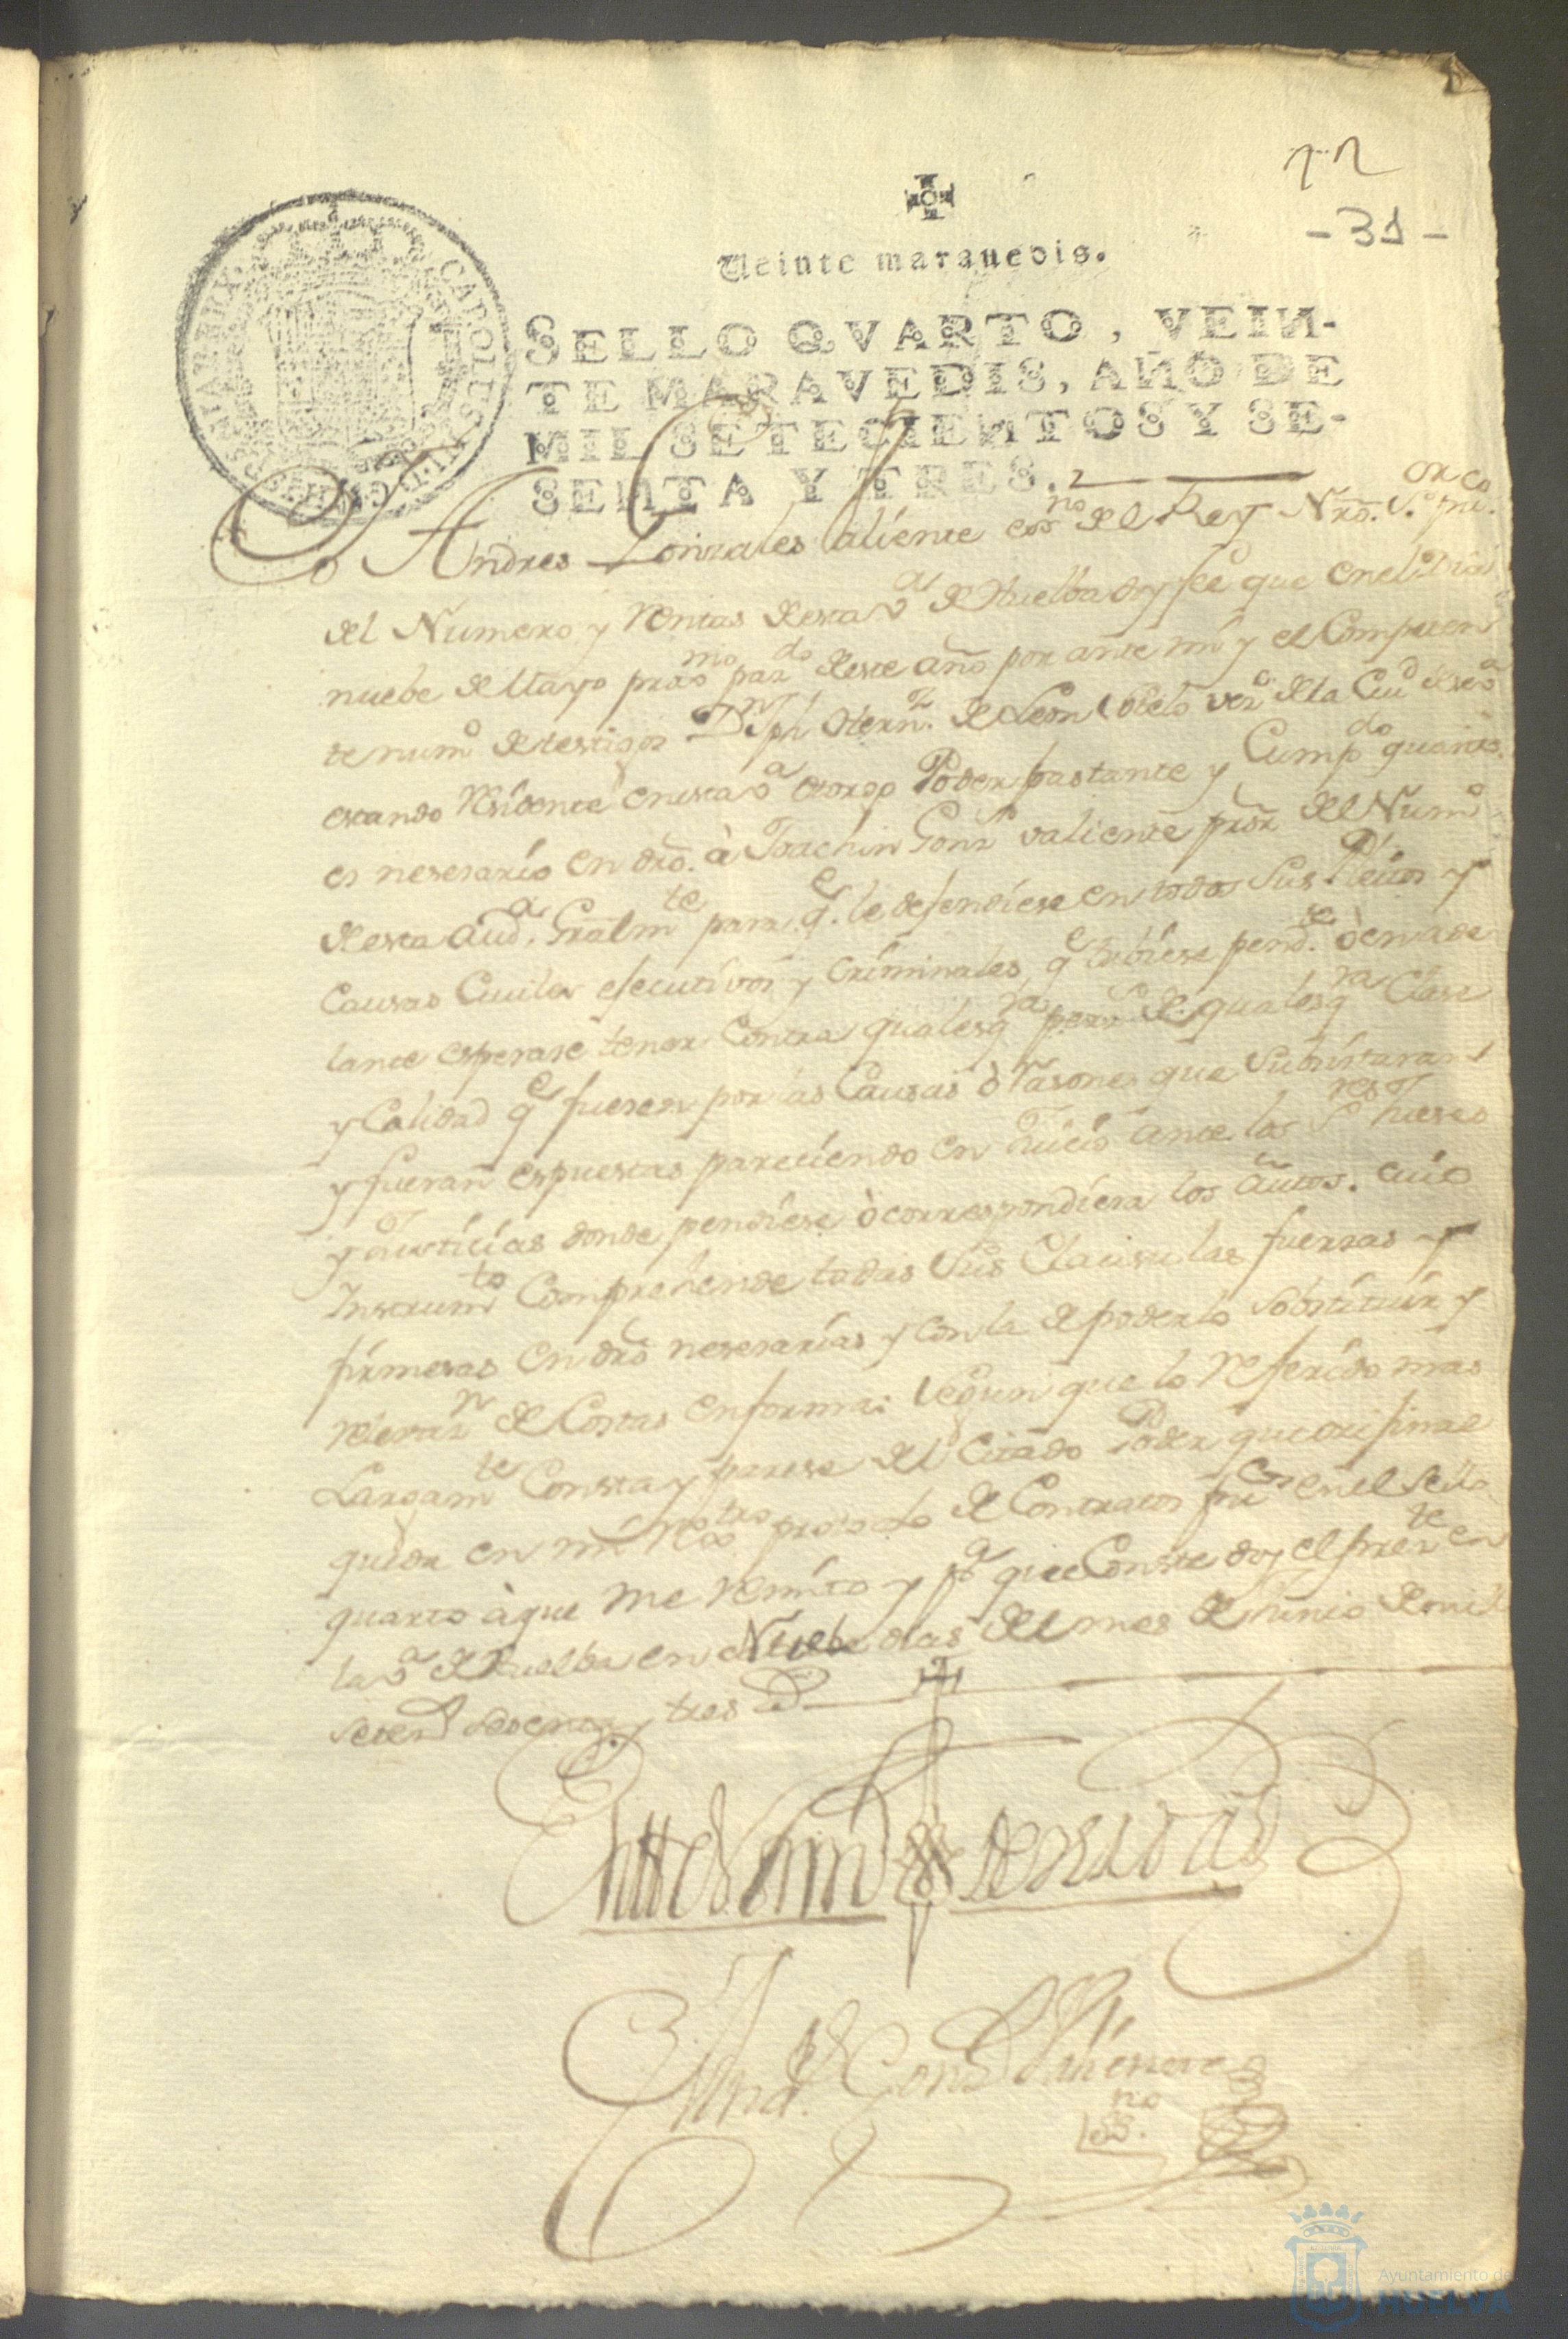 72
- 31 -
Veinte marauedis.
SELLO QVARTO, VEIN-
TE MARAVEDIS, AÑO DE
MIL SETECIENTOS Y SE-
SENTA Y TRES.
Yo Andres Gonzales Valiente essno del Rey Nro. Sor pu.co
del Numero y Rentas desta va de Huelba doy fee que en el dia
nuebe de Mayo proxmo pasdo deste año por ante mi y el Competen
te numo de testigos Dn Jph Hernz. de Leon veo de la Ciud de
estando Residente en esta va otorgo Poder bastante y Cumpdo quanto
es nesesario en dro. à Joachin Gonz valiente pror del Numo
desta Auda. Gralmte para qe. le defendiese en todos sus Pleitos y
Causas Civiles executivos y Criminales, qe tubiese pendte. ò en ade
lante esperase tener Contra qualesqa pers de qualesqra Clase
y Calidad qe fuesen por las Causas ò Rasones que Subsistaran
y fueran espuestas pareciendo en Juicio ante los Sres Jueses
y Justicias donde pendiese ò correspondiera los autos. Cuio
Instrumto Comprehende todas Sus Clausulas fuerzas y
firmesas en dro nesesarias y con la de poderlo Sobstituir y
relevazn de Costas en forma: Segun que lo Referido mas
Largamte Consta y parese del Citado Poder que orixinal
queda en mi Rextro protocolo de Contratos pucos en el Sello
quarto à que me Remito y pa que Conste doy el preste en
la va de Huelba en Nuebe dias del mes de Junio de mil
setesos sesenta y tres
Andes Gons Valiente
essno.
Ayuntamiento de
HUELVA